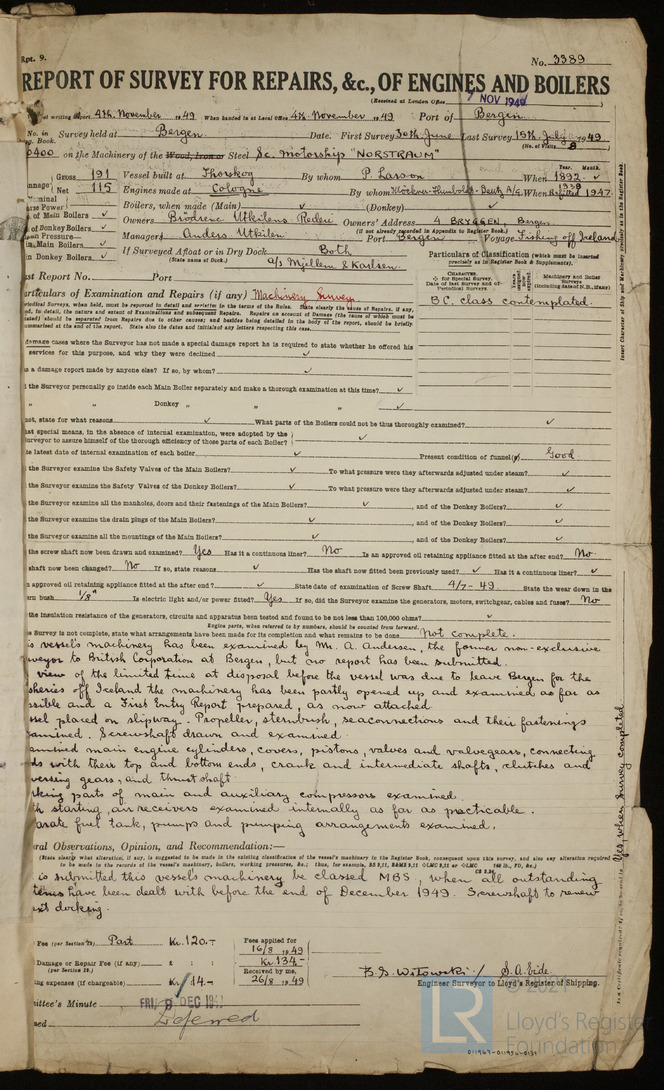 Rpt. 9.
No. 3389
REPORT OF SURVEY FOR REPAIRS, &c., OF ENGINES AND BOILERS
(Received at London Office 7 NOV 1949 )
of writing Report 4th November 1949 When handed in at Local Office 4th November 1949 Port of Bergen
No. in Survey held at Bergen Date. First Survey 30th June Last Survey 19th July 1949
Reg. Book. (No. of Visits 8
0400 on the Machinery of the Wood, Iron or Steel Sc. Motorship "NORSTRAUM"
Gross 191 Vessel built at Thorskog By whom P. Larsson When 1892
nnage Net 115 Engines made at Cologne By whom Klöckner-Humboldt-Deutz A/G. When 1938 Refitted 1947
ominal rse Power Boilers, when made (Main) ✓ (Donkey) ✓
of Main Boilers ✓ Owners Brödrene Utkilens Rederi Owners' Address 4 BRYGGEN, Bergen
(if not already recorded in Appendix to Register Book.)
of Donkey Boilers ✓ Managers Anders Utkilen Port Bergen Voyage Fishing off Iceland
am Pressure—
in Main Boilers ✓ If Surveyed Afloat or in Dry Dock Both
(State name of Dock.) a/s Mjellem & Karlsen.
in Donkey Boilers ✓
Particulars of Classification (which must be inserted precisely as in Register Book & Supplements).
st Report No. Port
CHARACTER
for Special Survey.
Date of last Survey and of Periodical Surveys.
Machinery and Boiler Surveys
BC. class contemplated.
articulars of Examination and Repairs (if any) Machinery Survey
damage cases where the Surveyor has not made a special damage report he is required to state whether he offered his
services for this purpose, and why they were declined ✓
s a damage report made by anyone else? If so, by whom? ✓
the Surveyor personally go inside each Main Boiler separately and make a thorough examination at this time? ✓
„ „ Donkey „ „ „ ✓
not, state for what reasons ✓ What parts of the Boilers could not be thus thoroughly examined? ✓
at special means, in the absence of internal examination, were adopted by the
urveyor to assure himself of the thorough efficiency of those parts of each Boiler? ✓
te latest date of internal examination of each boiler ✓ Present condition of funnel(s) Good.
the Surveyor examine the Safety Valves of the Main Boilers? ✓ To what pressure were they afterwards adjusted under steam? ✓
the Surveyor examine the Safety Valves of the Donkey Boilers? ✓ To what pressure were they afterwards adjusted under steam? ✓
the Surveyor examine all the manholes, doors and their fastenings of the Main Boilers? ✓ , and of the Donkey Boilers? ✓
the Surveyor examine the drain plugs of the Main Boilers? ✓ , and of the Donkey Boilers? ✓
the Surveyor examine all the mountings of the Main Boilers? ✓ , and of the Donkey Boilers? ✓
the screw shaft now been drawn and examined? Yes Has it a continuous liner? No Is an approved oil retaining appliance fitted at the after end? No.
shaft now been changed? No If so, state reasons ✓ Has the shaft now fitted been previously used? ✓ Has it a continuous liner? ✓
n approved oil retaining appliance fitted at the after end? ✓ State date of examination of Screw Shaft 4/7-49 State the wear down in the
rn bush 1/8" Is electric light and/or power fitted? Yes If so, did the Surveyor examine the generators, motors, switchgear, cables and fuses? No
the insulation resistance of the generators, circuits and apparatus been tested and found to be not less than 100,000 ohms? ✓
Engine parts, when referred to by numbers, should be counted from forward.
e Survey is not complete, state what arrangements have been made for its completion and what remains to be done Not complete.
is vessel's machinery has been examined by Mr. A. Andersen, the former non-exclusive
rveyor to British Corporation at Bergen, but no report has been submitted.
view of the limited time at disposal before the vessel was due to leave Bergen for the
sheries off Iceland the machinery has been partly opened up and examined as far as
ssible and a First Entry Report prepared, as now attached.
ssel placed on slipway. Propeller, sternbush, seaconnections and their fastenings
amined. Screwshaft drawn and examined.
amined main engine cylinders, covers, pistons, valves and valvegears, connecting
ds with there top and bottom ends, crank and intermediate shafts, clutches and
versing gears, and thrust shaft.
rking parts of main and auxiliary compressors examined.
th starting airreceivers examined internally as far as practicable.
arate fuel tank, pumps and pumping arrangements examined.
eral Observations, Opinion, and Recommendation:—
(State clearly what alteration, if any, is suggested to be made in the existing classification of the vessel's machinery in the Register Book, consequent upon this survey, and also any alteration required
to be made in the records of the vessel's machinery, boilers, working pressures, &c.;
is submitted this vessel's machinery be classed MBS, when all outstanding
items have been dealt with before the end of December 1949. Screwshaft to renew
ext docking.
Fee (per Section 29) Part Kr. 120.-
Fees applied for
16/8 1949
Damage or Repair Fee (if any) £ : :
(per Section 29.)
Kr. 134.-
Received by me,
26/8 1949
ing expenses (if chargeable) Kr. 14.-
S. A. Eide.
Engineer Surveyor to Lloyd's Register of Shipping.
mittee's Minute FRI. 9 DEC 194
ned Deferred
Insert Character of Ship and Machinery precisely as in the Register Book
Yes, when survey completed
© 2021
LR
Lloyd's Register
Foundation
011967-011976-0139